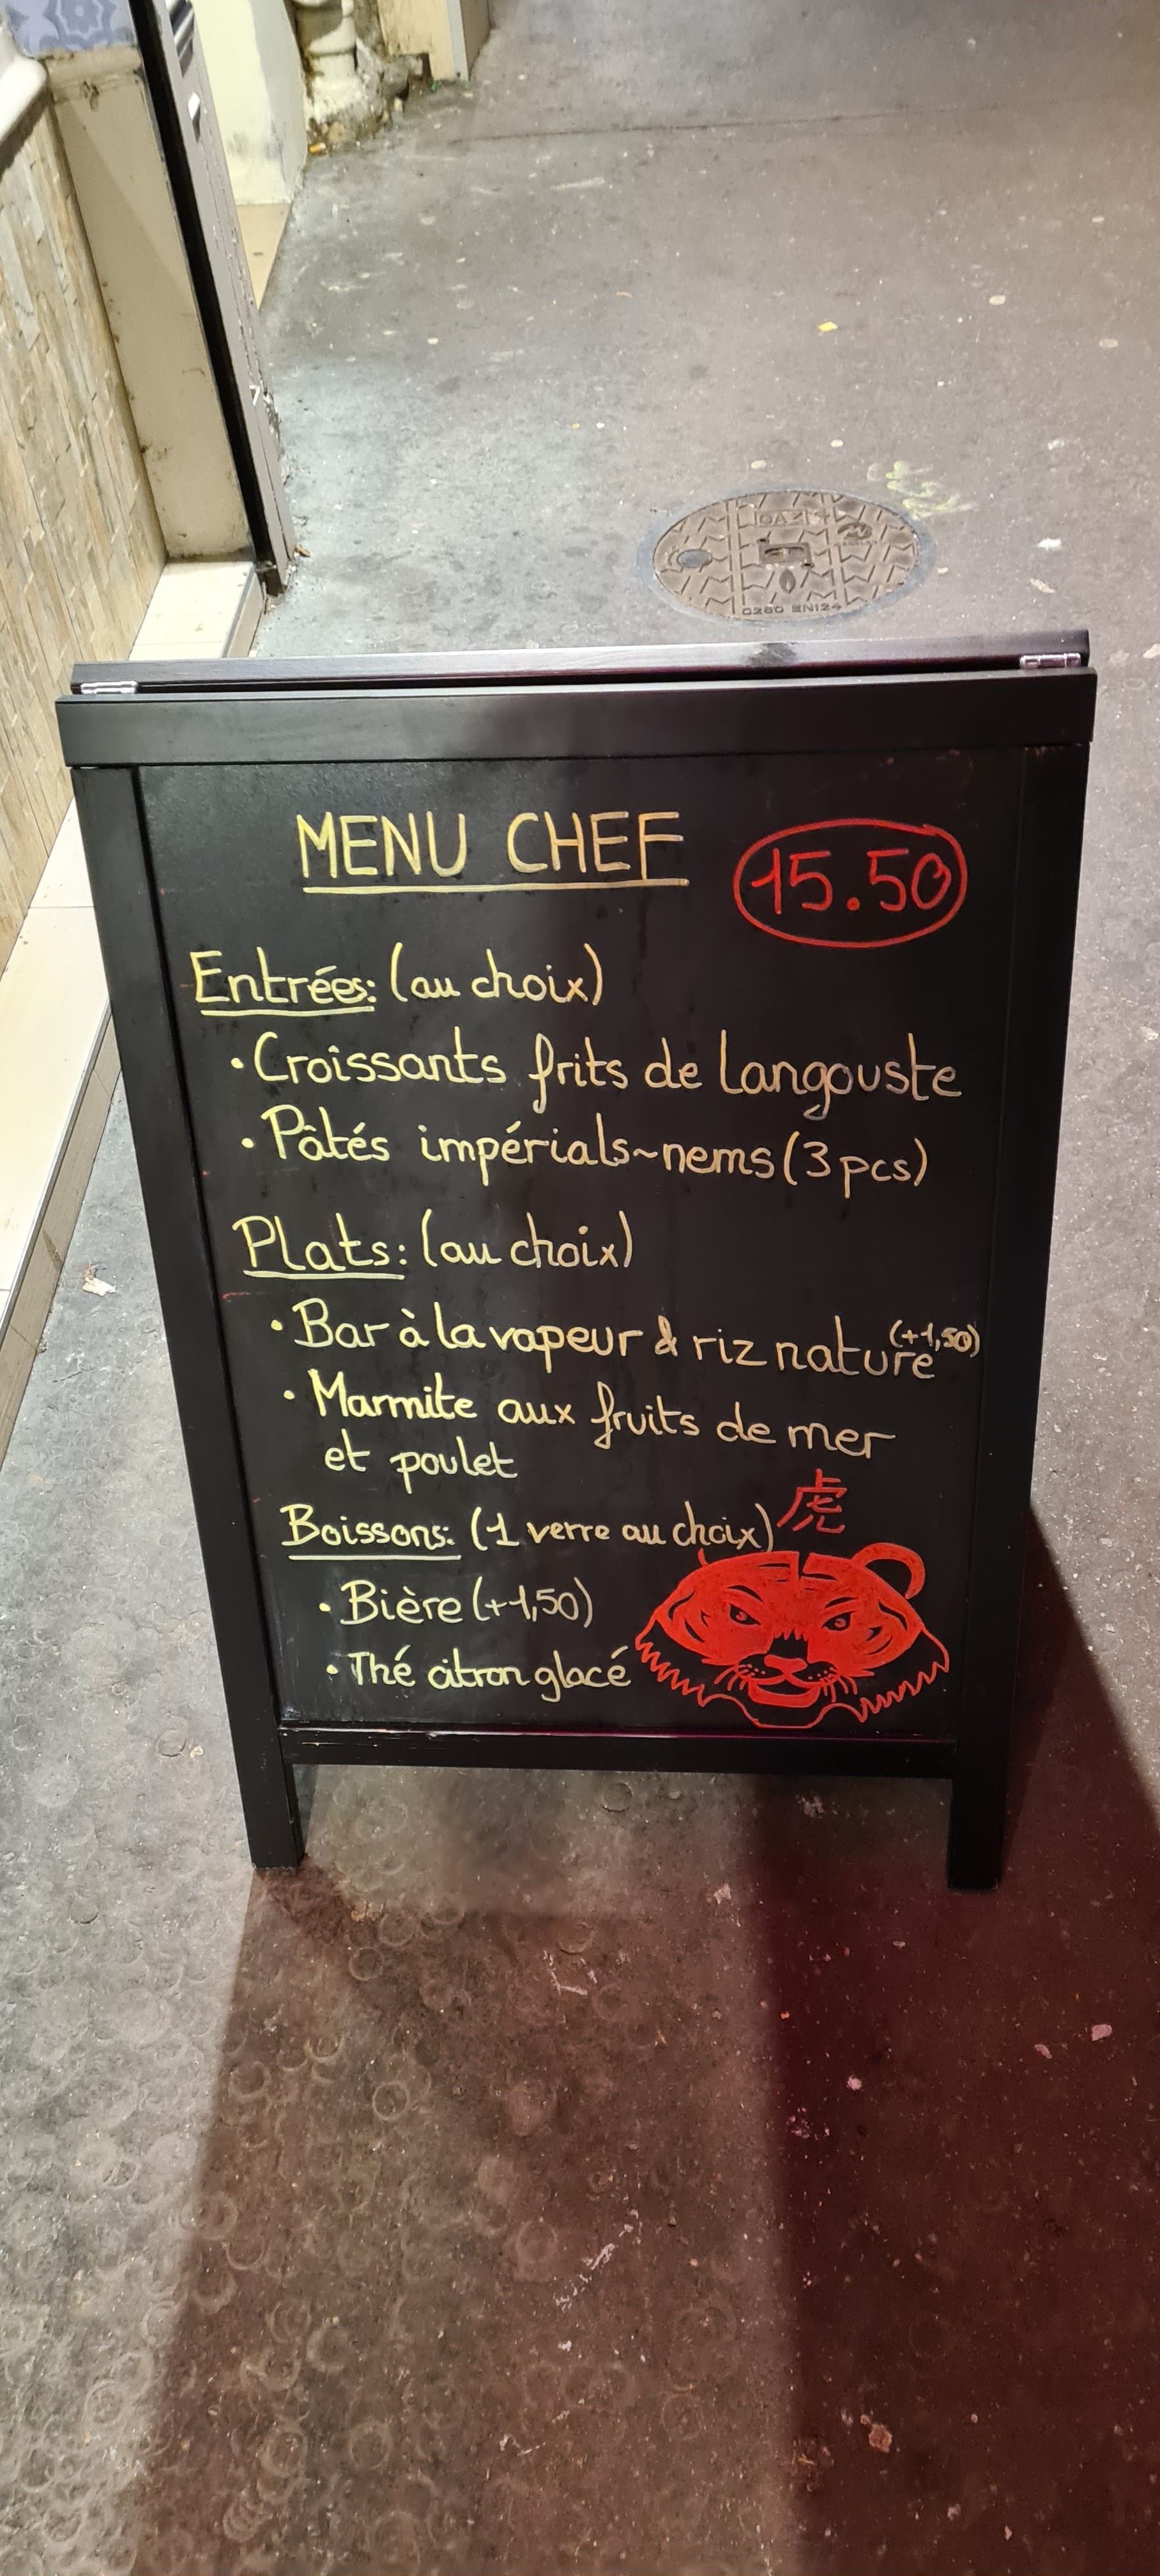 GAZ
C250 EN124
MENU CHEF
15.50
Entrées: (au choix)
• Croissants frits de langouste
• Pâtés impérials~nems (3 pcs)
Plats: (au choix)
• Bar à la vapeur & riz nature (+1,50)
• Marmite aux fruits de mer
et poulet
Boissons: (1 verre au choix)
虎
• Bière (+1,50)
• Thé citron glacé